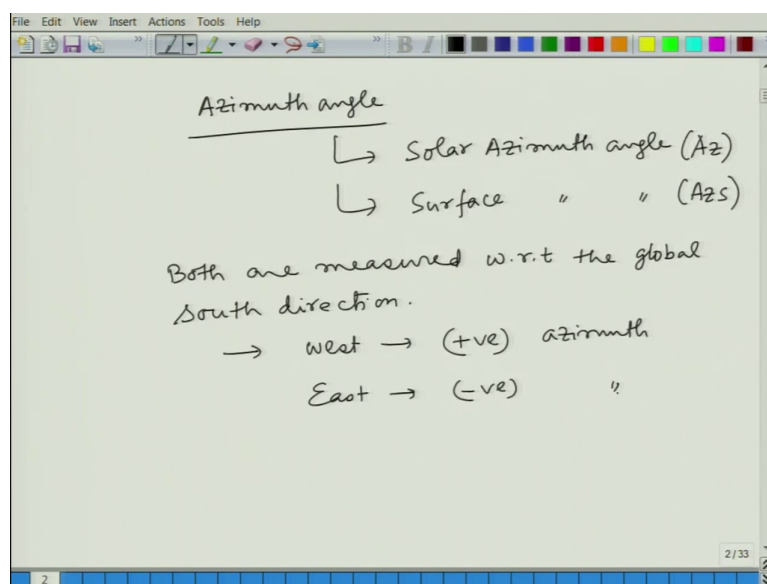 File Edit View Insert Actions Tools Help
Azimuth angle
↳ Solar Azimuth angle (Az)
↳ Surface " " (Azs)
Both are measured w.r.t the global
south direction.
→ west → (+ve) azimuth
East → (-ve) "
2/33
2